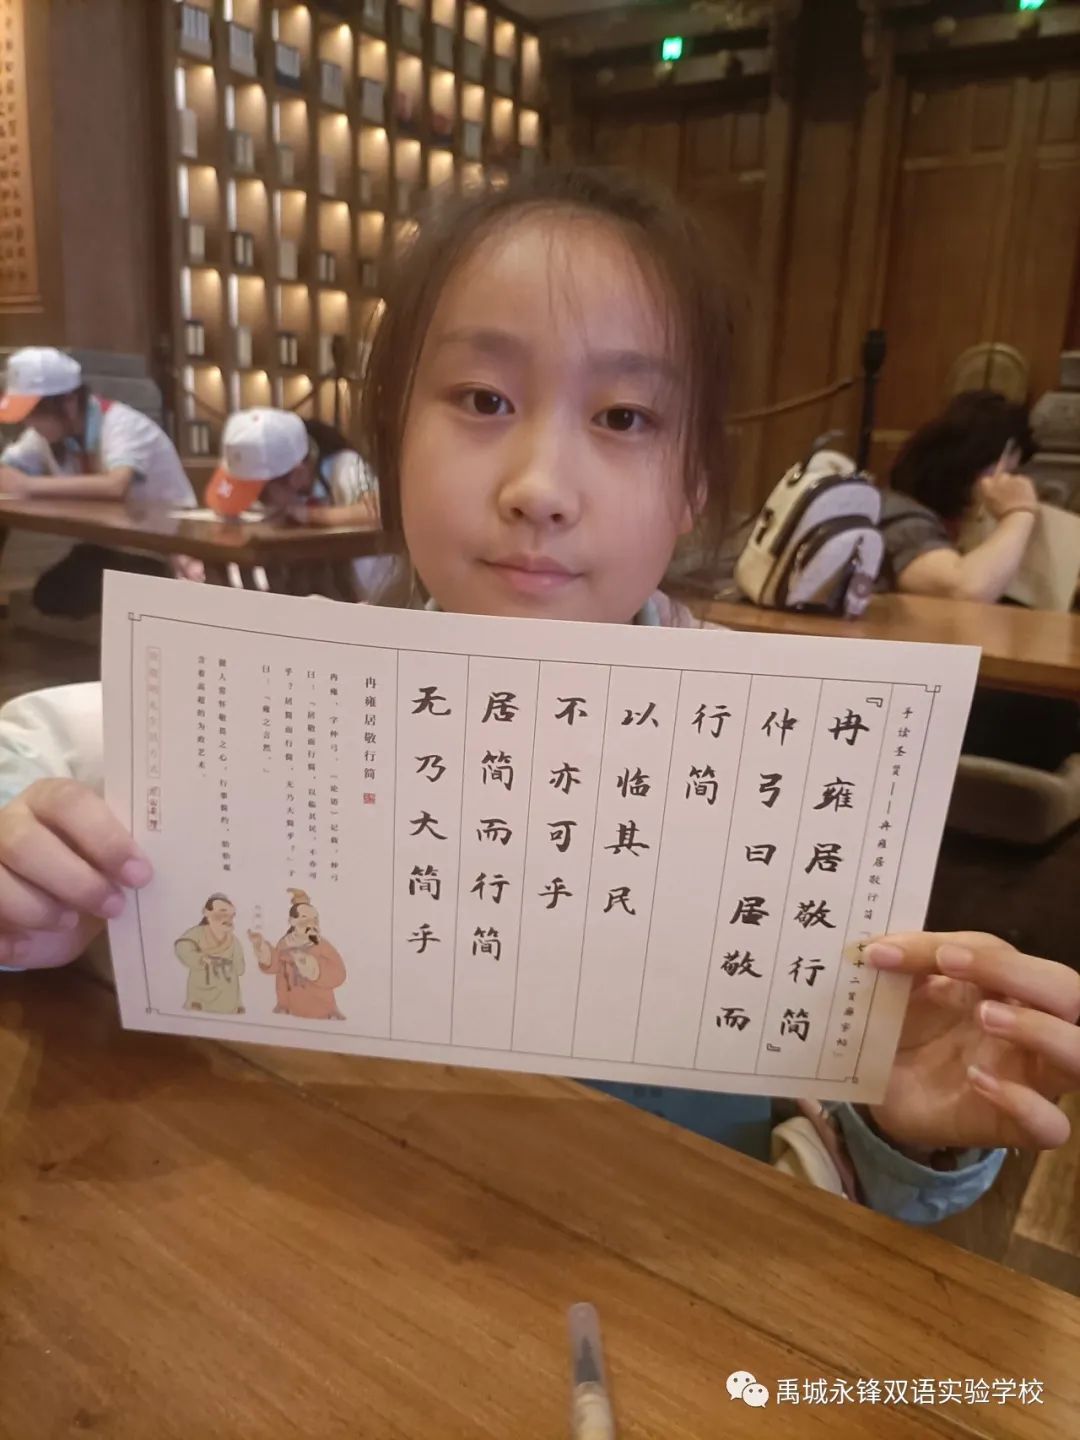 手读圣贤——冉雍居敬行简「七十二贤廊字帖」
『冉雍居敬行简』
仲弓曰居敬而
行简
以临其民
不亦可乎
居简而行简
无乃大简乎
冉雍居敬行简
冉雍，字仲弓。《论语》记载，仲弓
曰：“居敬而行简，以临其民，不亦可
乎？居简而行简，无乃大简乎？”子
曰：“雍之言然。”
做人需怀敬畏之心，行事简约，
含着高超的为政艺术。
禹城永锋双语实验学校